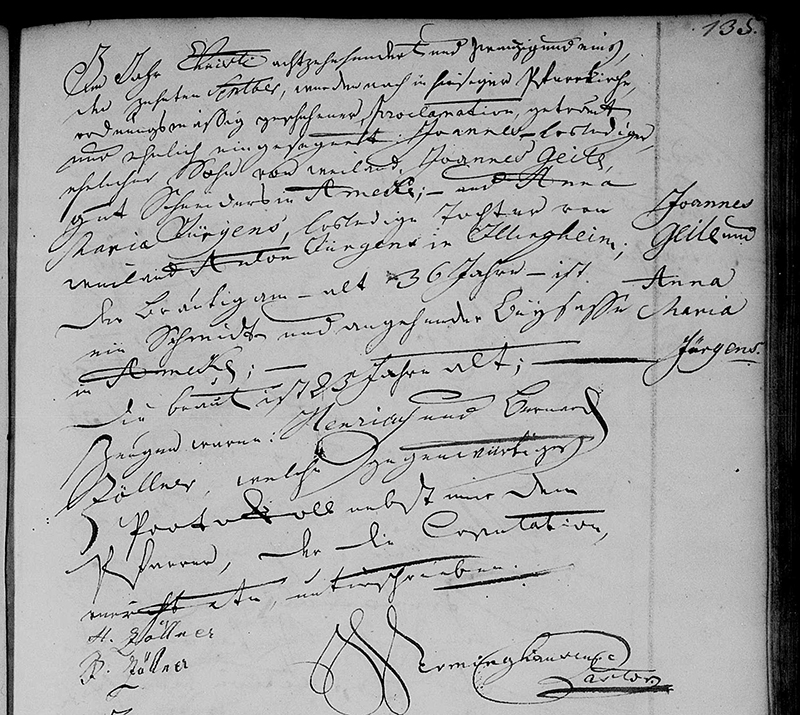 135.
Im Jahr Christi achtzehnhundert und zwanzig und eins,
den zehnten 7ber, wurden nach in hiesiger Pfarrkirche,
ordnungsmässig geschehener Proclamation, getraut
und ehelich eingesegnet: Joannes, losledige,
ehelicher Sohn von weiland Joannes Geile,
gut Schneiders in Amecke; und Anna
Maria Jürgens, losledige Tochter von
weiland Anton Jürgens in Illingheim;
der Bräutigam alt 36 Jahre ist
ein Schmidt und angehender Beysasse
in Amecke;
die Braut ist 25 Jahre alt;
Zeugen waren: Henrich und Bernard
Zöllner, welche gegenwärtiges
Protokoll nebst mir dem
Pfarrer, der die Copulation,
verrichtete, unterschrieben.
Joannes
Geile und
Anna
Maria
Jürgens.
H. Zöllner
B. Zöllner
Pastor